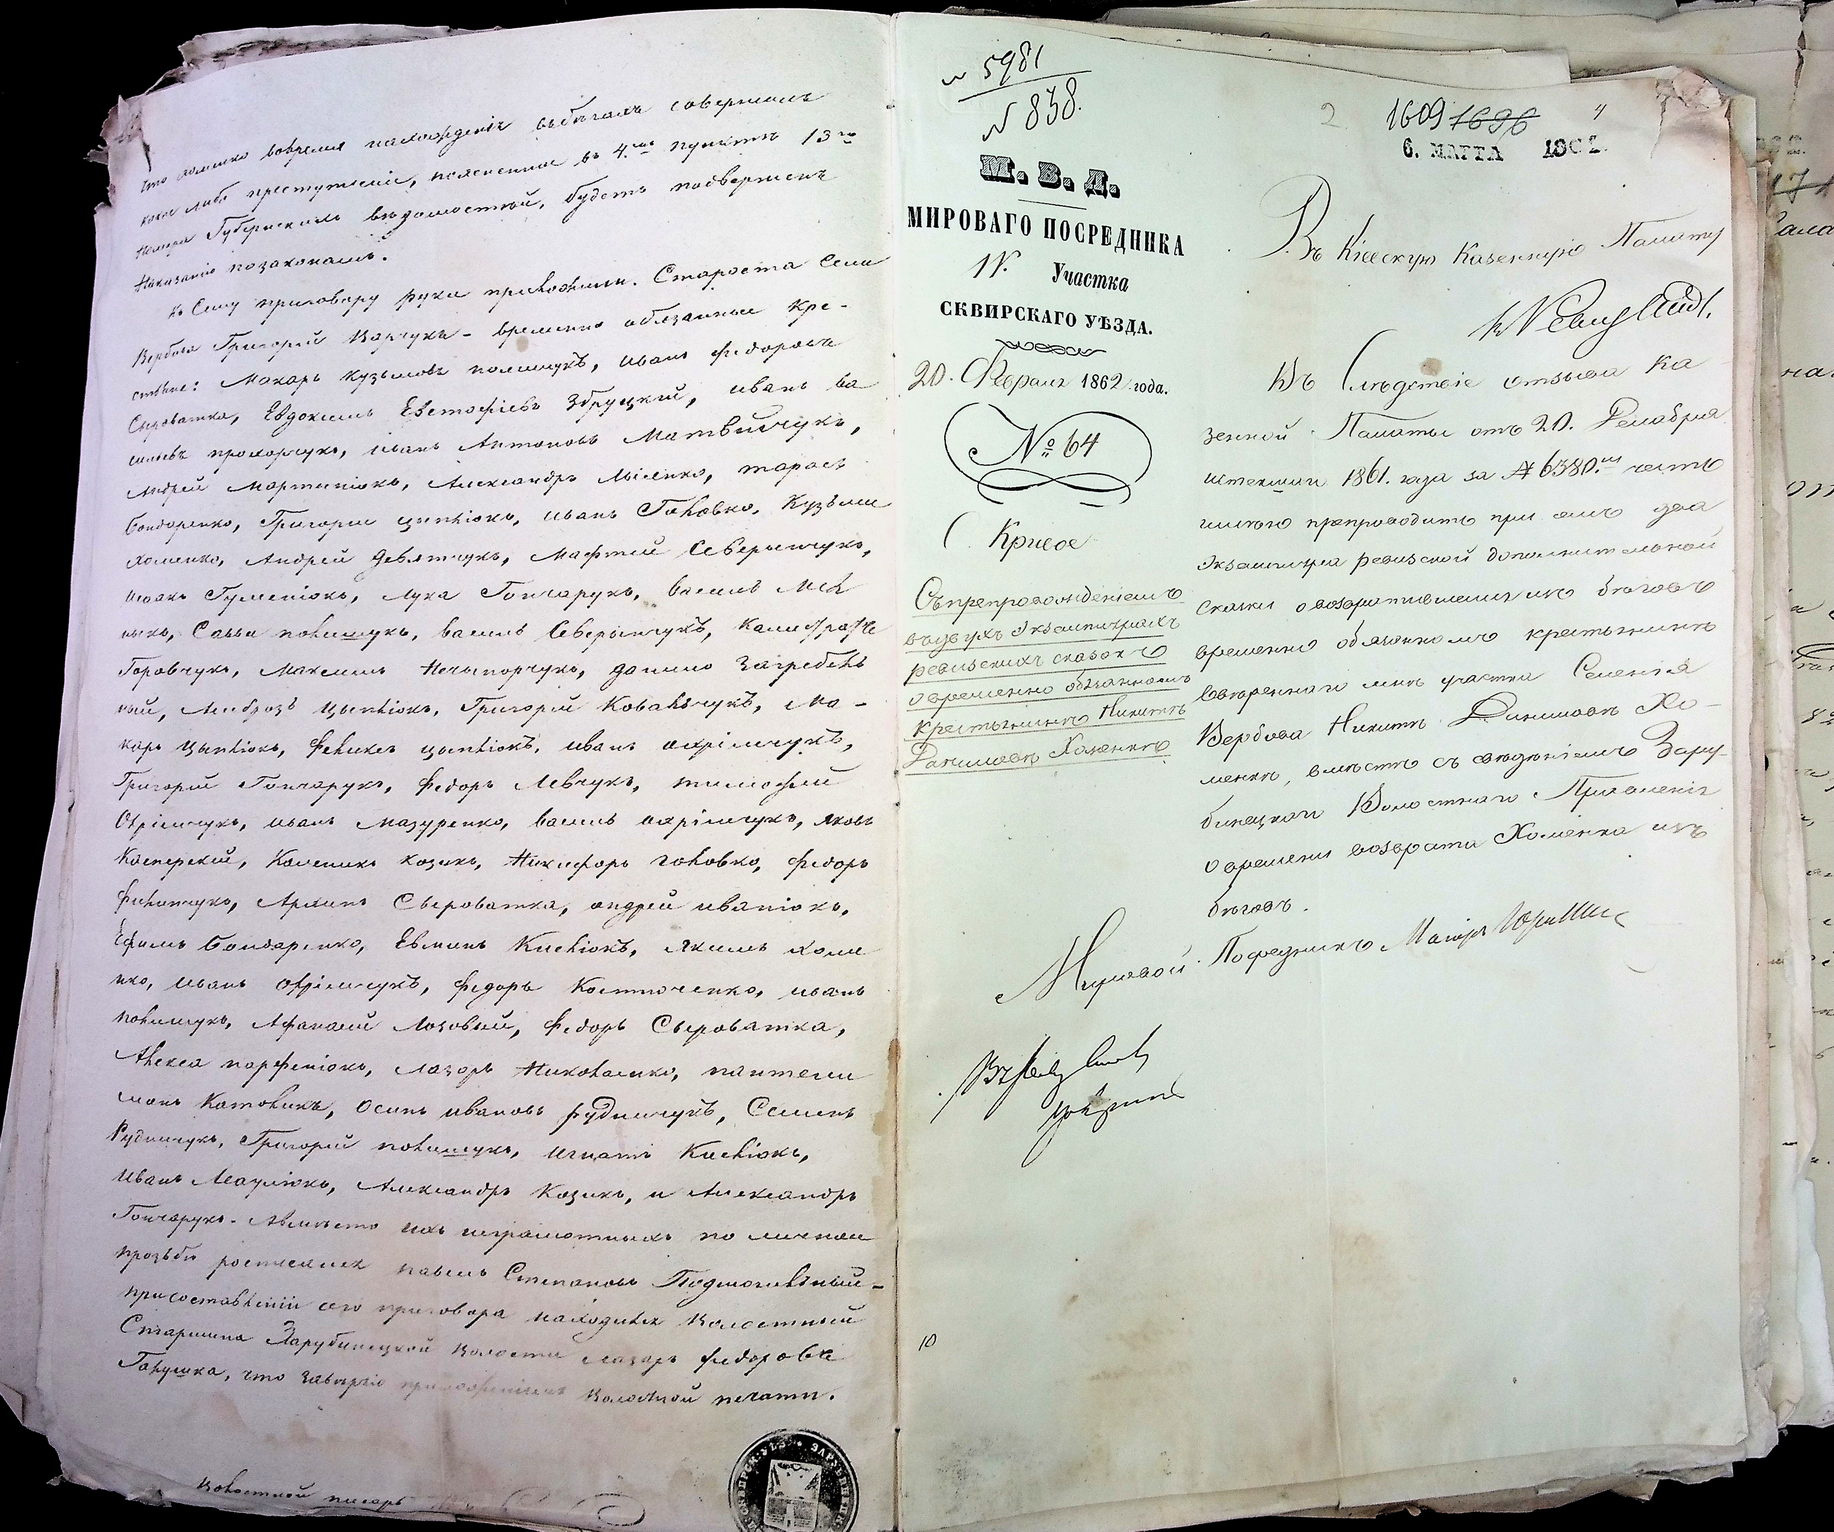 что хоменко вовремя нахожденія въбѣгахъ совершилъ
какое либо преступленіе, поясненное въ 4.мъ пунктѣ 13го
номера Губернскихъ вѣдомостей, будетъ подверженъ
Наказанію позаконамъ.
къ Сему приговору руки приложили. Староста Села
Вербова Григорій Варчукъ - временно обязанные кре-
стьяне: Макаръ Кузьмовъ полищукъ, Иванъ Федоровъ
Сыроватка, Евдокимъ Евстафіевъ Збруцкій, иванъ ва
сильевъ прохорчукъ, иванъ Антоновъ Матвійчукъ,
Андрей Мартинюкъ, Александръ Лысенко, тарасъ
бондаренко, Григорій цыпліокъ, иванъ Головко, Кузьма
хоменко, Андрей Девятчукъ, Мафтей Северынчукъ,
иванъ Гуменіокъ, лука Гончарукъ, василь
Савва полищукъ, василь Северынчукъ, Калистратъ
Горовчукъ, Максимъ Нечыпорчукъ, данило Загребель
ный, Амброзъ цыпліокъ, Григорій Ковальчукъ, Ма-
каръ цыпліокъ, Феликсъ цыпліокъ, иванъ охрімчукъ,
Григорій Гончарукъ, федоръ Левчукъ, тимофей
Охрімчукъ, иванъ Мазуренко, василь охрімчукъ, яковъ
Касперскій, Калиникъ козикъ, Никифоръ головко, федоръ
филипчукъ, Архипъ Сыроватка, андрей иваніокъ,
Ефимъ бондаренко, Евминъ Кисліокъ, якимъ хоме
нко, иванъ охрімчукъ, федоръ Костюченко, иванъ
полищукъ, Афанасій Лозовый, федоръ Сыроватка,
Алекса парфеніокъ, лазоръ Николаенко, пантели
монъ Катовикъ, Осипъ ивановъ рудничукъ, Семенъ
Рудничукъ, Григорій полищукъ, игнатъ Кисліокъ,
иванъ Александръ Козикъ, и Александръ
Гончарукъ. Авмѣсто ихъ неграмотныхъ по личной
прозьбѣ росписался павелъ Степановъ Подмогильный -
присоставленіи сего приговора находился Волостный
Старшина Зарубинецкой волости лазарь федоровъ
Галушка, что завѣряю приложеніемъ Волостной печати.
Волостной писарь
№ 5981
№ 838.
М. В. Д.
МИРОВАГО ПОСРЕДНИКА
IV. Участка
СКВИРСКАГО УѢЗДА.
20. Февраля 1862 года.
№ 64
С. Кривое
Съпрепровожденіемъ
въдвухъ экземплярахъ
ревизскихъ сказокъ
о временно обязанномъ
крестьянинѣ Никитѣ
Даниловѣ Хоменкѣ
2
1609 1696
4
6. МАРТА 1862.
Въ Кіевскую Казенную Палату
Въ Слѣдствіе отзыва Ка
зенной Палаты отъ 20. Декабря
истекшаго 1861. года за № 6380.мъ честь
имѣю препроводить при семъ два
экземпляра ревизской дополнительной
сказки о возвратившемся изъ бѣговъ
временно обязанномъ крестьянинѣ
ввѣреннаго мнѣ участка Селенія
Вербова Никитѣ Даниловѣ Хо-
менкѣ, вмѣстѣ съ свѣдѣніемъ Зару-
бинецкаго Волостнаго Правленія
о времени возврата Хоменка изъ
бѣговъ.
Мировой Посредникъ Маіоръ
10